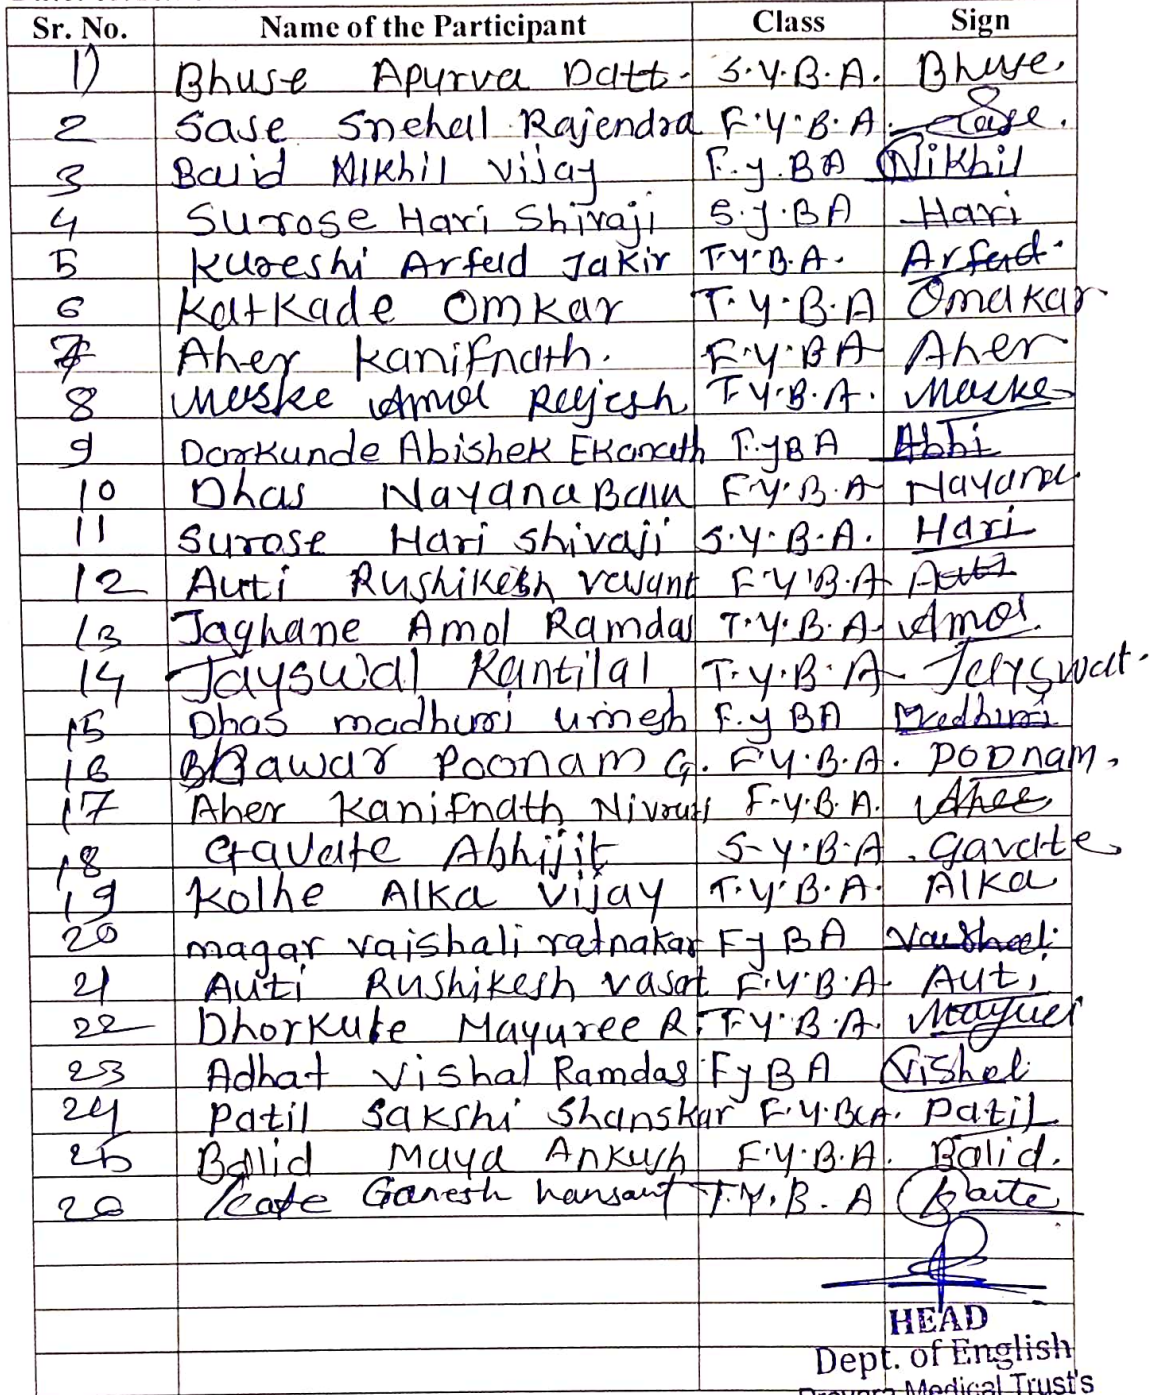 Sr. No. Name of the Participant Class Sign
1) Bhuse Apurva Datt. S.Y.B.A. Bhuse.
2 Sase Snehal Rajendra F.Y.B.A. Sase.
3 Baid Nikhil Vijay F.y.BA Nikhil
4 Surose Hari Shivaji S.y.BA Hari
5 Kureshi Arfad Jakir T.Y.B.A. Arfad.
6 Katkade Omkar T.Y.B.A Omakar
7 Aher Kanifnath. F.Y.BA Aher
8 Muske Amol Rajesh T.Y.B.A. Muske
9 Darkunde Abishek Ekanath F.yBA Abhi
10 Dhas Nayana Balu F.Y.B.A Nayana
11 Surose Hari Shivaji S.Y.B.A. Hari
12 Auti Rushikesh F.Y.B.A Auti
13 Jaghane Amol Ramdas T.Y.B.A. Amol.
14 Jayswal Kantilal T.Y.B.A Jayswal.
15 Dhas madhuri umesh F.y BA Madhuri
16 Bawar Poonam G. F.Y.B.A. Poonam.
17 Aher Kanifnath Nivrutti F.Y.B.A. Aher
18 Gavate Abhijit S-Y.B.A. Gavate
19 Kolhe Alka Vijay T.Y.B.A. Alka
20 magar vaishali ratnakar Fy BA Vaishali
21 Auti Rushikesh vasat F.Y.B.A. Auti
22 Dhorkule Mayuree R. T.Y.B.A.
23 Adhat Vishal Ramdas Fy BA Vishal
24 Patil Sakshi Shanskar F.Y.B.A. Patil
25 Balid Maya Ankush F.Y.B.A. Balid.
26 Kate Ganesh T.Y.B.A
HEAD
Dept. of English
Pravara Medical Trust's